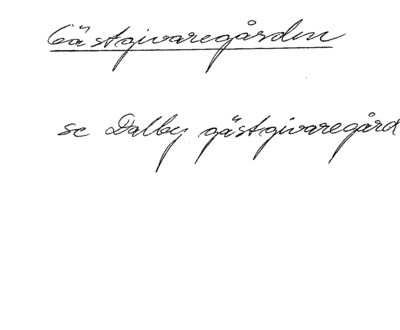 Gästgivaregården
se Dalby gästgivaregård